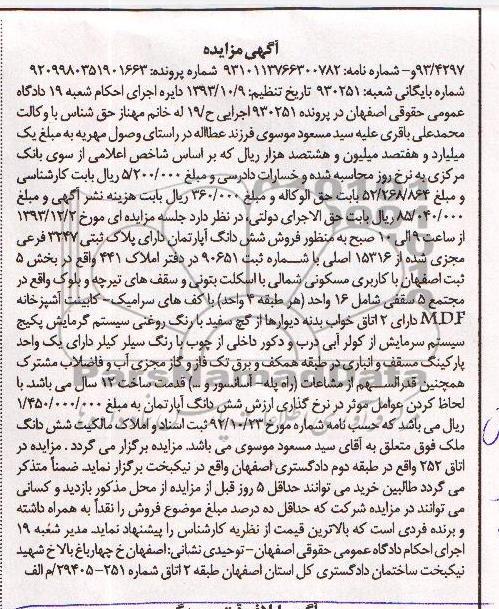 آگهی مزایده
۹۳/۴۲۹۷و- شماره نامه: ۹۳۱۰۱۱۳۷۶۶۳۰۰۷۸۲ شماره پرونده: ۹۲۰۹۹۸۰۳۵۱۹۰۱۶۶۳
شماره بایگانی شعبه: ۹۳۰۲۵۱ تاریخ تنظیم: ۱۳۹۳/۱۰/۹ دایره اجرای احکام شعبه ۱۹ دادگاه
عمومی حقوقی اصفهان در پرونده ۹۳۰۲۵۱اجرایی ح/۱۹ له خانم مهناز حق شناس با وکالت
محمدعلی باقری علیه سید مسعود موسوی فرزند عطااله در راستای وصول مهریه به مبلغ یک
میلیارد و هفتصد میلیون و هشتصد هزار ریال که بر اساس شاخص اعلامی از سوی بانک
مرکزی به نرخ روز محاسبه شده و خسارات دادرسی و مبلغ ۵/۲۰۰/۰۰۰ ریال بابت کارشناسی
و مبلغ ۵۲/۲۶۸/۸۶۴ بابت حق الوکاله و مبلغ ۳۶۰/۰۰۰ ریال بابت هزینه نشر آگهی و مبلغ
۸۵/۰۴۰/۰۰۰ ریال بابت حق الاجرای دولتی، در نظر دارد جلسه مزایده ای مورخ ۱۳۹۳/۱۲/۲
از ساعت ۹ الی ۱۰ صبح به منظور فروش شش دانگ آپارتمان دارای پلاک ثبتی ۳۲۴۷ فرعی
مجزی شده از ۱۵۳۱۶ اصلی با شـــماره ثبت ۹۰۶۵۱ در دفتر املاک ۴۴۱ واقع در بخش ۵
ثبت اصفهان با کاربری مسکونی شمالی با اسکلت بتونی و سقف های تیرچه و بلوک واقع در
مجتمع ۵ سقفی شامل ۱۶ واحد (هر طبقه ۴ واحد) با کف های سرامیک- کابینت آشپزخانه
MDF دارای ۲ اتاق خواب بدنه دیوارها از گچ سفید با رنگ روغنی سیستم گرمایش پکیج
سیستم سرمایش از کولر آبی درب و دکور داخلی از چوب با رنگ سیلر کیلر دارای یک واحد
پارکینگ مسقف و انباری زیر طبقه همکف و برق تک فاز و گاز مجزی آب و فاضلاب مشترک
همچنین قدرالسـهم از مشاعات (راه پله- آسانسور و س) قدمت ساخت ۱۲ سال می باشد با
لحاظ کردن عوامل موثر در نرخ گذاری ارزش شش دانگ آپارتمان به مبلغ ۱/۴۵۰/۰۰۰/۰۰۰
ریال می باشد که حسب نامه شماره مورخ ۹۲/۱۰/۲۳ ثبت اسناد و املاک مالکیت شش دانگ
ملک فوق متعلق به آقای سید مسعود موسوی می باشد. مزایده برگزار می گردد . مزایده در
اتاق ۲۵۲ واقع در طبقه دوم دادگستری اصفهان واقع در نیکبخت برگزار نماید. ضمناً متذکر
می گردد طالبین خرید می توانند حداقل ۵ روز قبل از مزایده از محل مذکور بازدید و کسانی
می توانند در مزایده شرکت که حداقل ده درصد مبلغ موضوع فروش را نقداً به همراه داشته
و برنده فردی است که بالاترین قیمت از نظریه کارشناس را پیشنهاد نماید. مدیر شعبه ۱۹
اجرای احکام دادگاه عمومی حقوقی اصفهان- توحیدی نشانی: اصفهان خ چهارباغ بالا خ شهید
نیکبخت ساختمان دادگستری کل استان اصفهان طبقه ۲ اتاق شماره ۲۵۱-۲۹۴۰۵/م الف